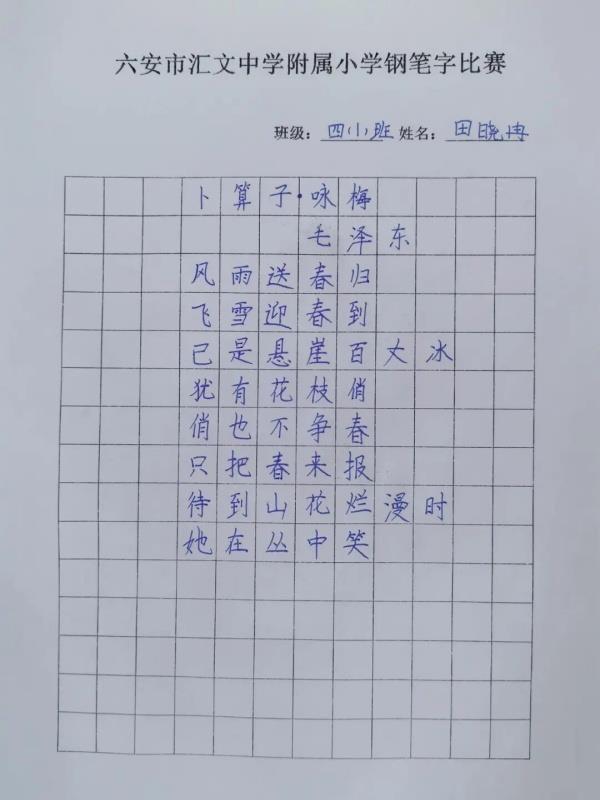 六安市汇文中学附属小学钢笔字比赛
班级：四小班 姓名：田晓冉
卜算子·咏梅
毛泽东
风雨送春归
飞雪迎春到
已是悬崖百丈冰
犹有花枝俏
俏也不争春
只把春来报
待到山花烂漫时
她在丛中笑